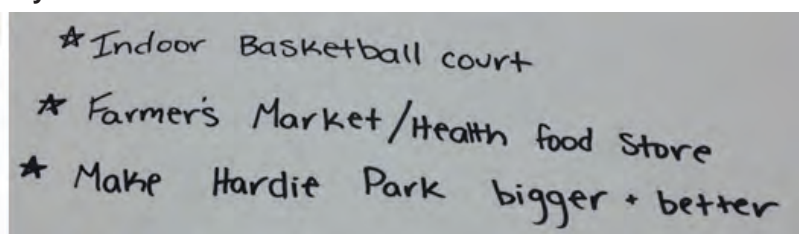 ☆ Indoor Basketball court
☆ Farmer's Market/Health food Store
☆ Make Hardie Park bigger + better